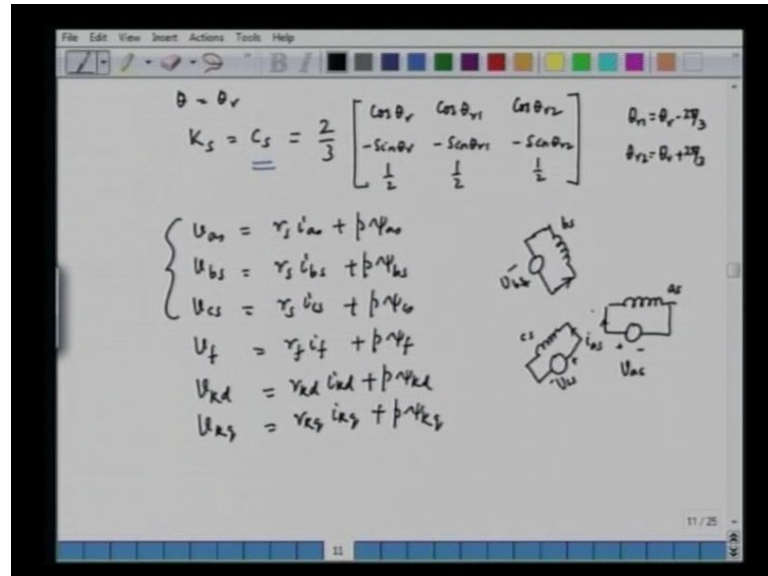 File Edit View Insert Actions Tools Help
θ = θr
Ks = Cs = 2/3 [ Cosθr Cosθr1 Cosθr2
-Sinθr -Sinθr1 -Sinθr2
1/2 1/2 1/2 ]
θr1 = θr - 2π/3
θr2 = θr + 2π/3
vas = rs ias + pψas
vbs = rs ibs + pψbs
vcs = rs ics + pψcs
vf = rf if + pψf
vKd = rKd iKd + pψKd
vKq = rKq iKq + pψKq
bs
Vbs
as
ias
+ -
Vas
cs
Vcs
11 / 25
11